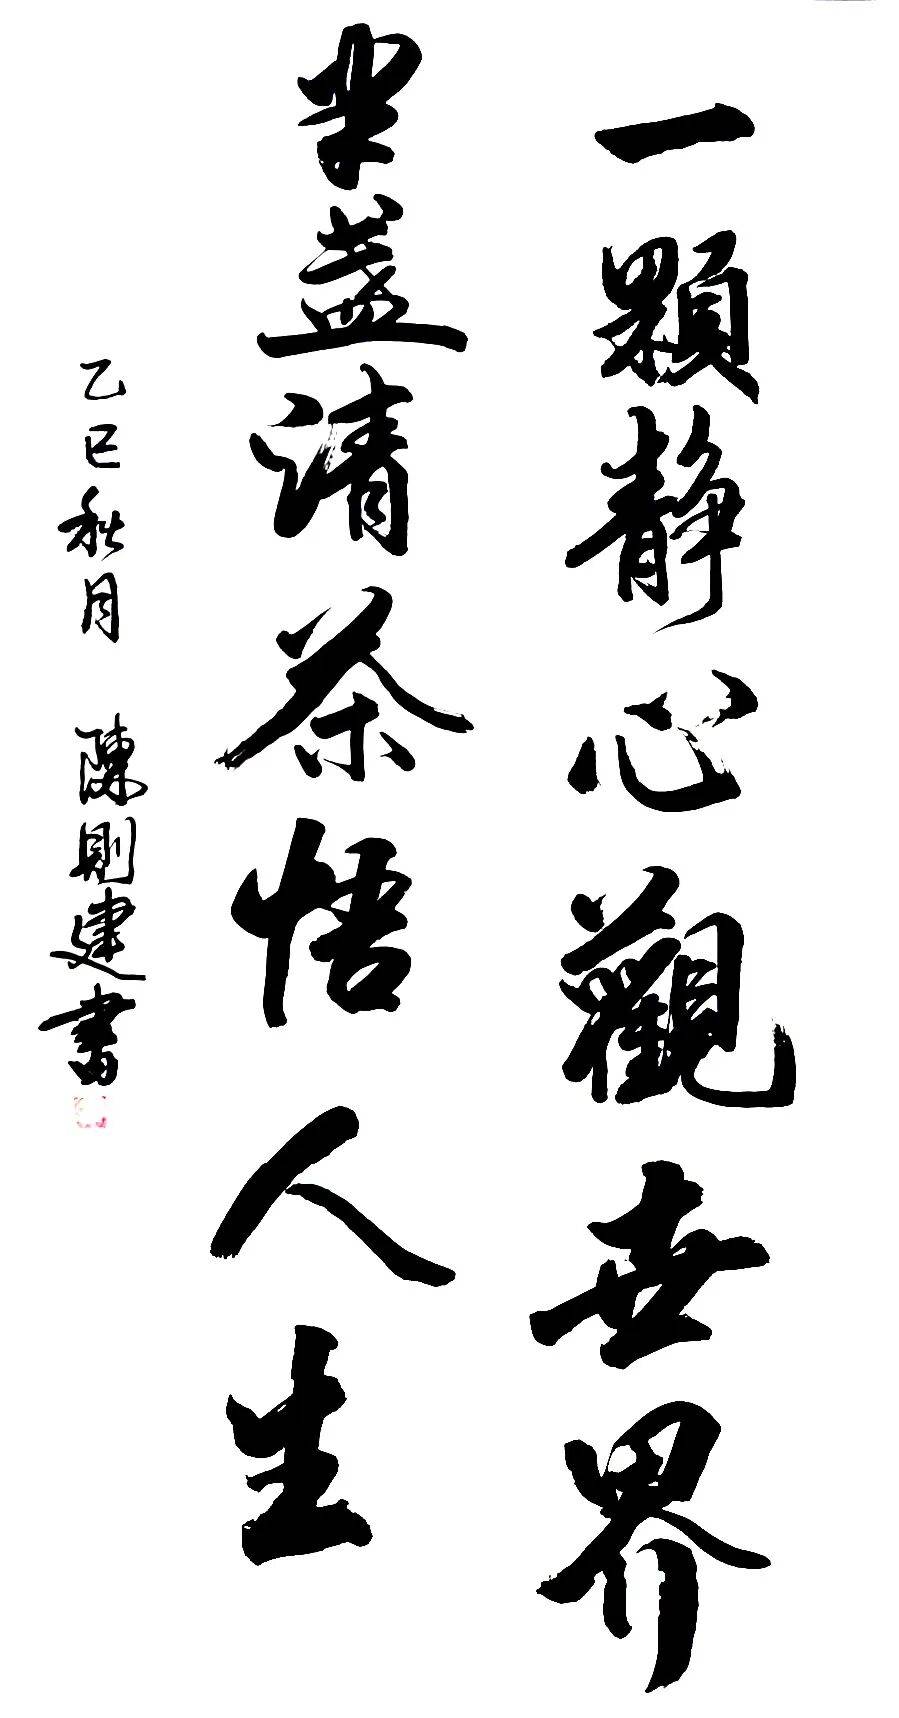 一顆静心觀世界
半盏清茶悟人生
乙巳秋月 陳剛建書